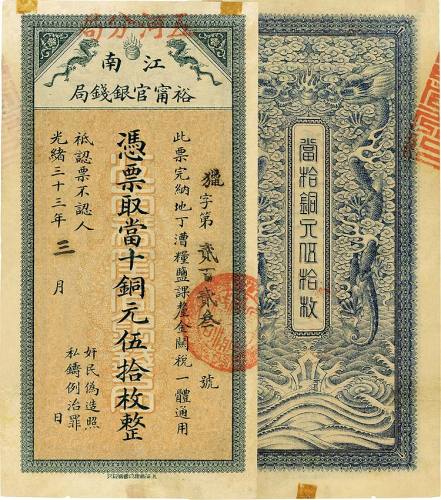 五河分局
江南
裕甯官銀錢局
此票完納地丁漕糧鹽課釐金關稅一體通用
獵字第貳百貳叁號
憑票取當十銅元伍拾枚整
祗認票不認人
光緒三十三年三月 日
奸民偽造照
私鑄例治罪
當拾銅元伍拾枚